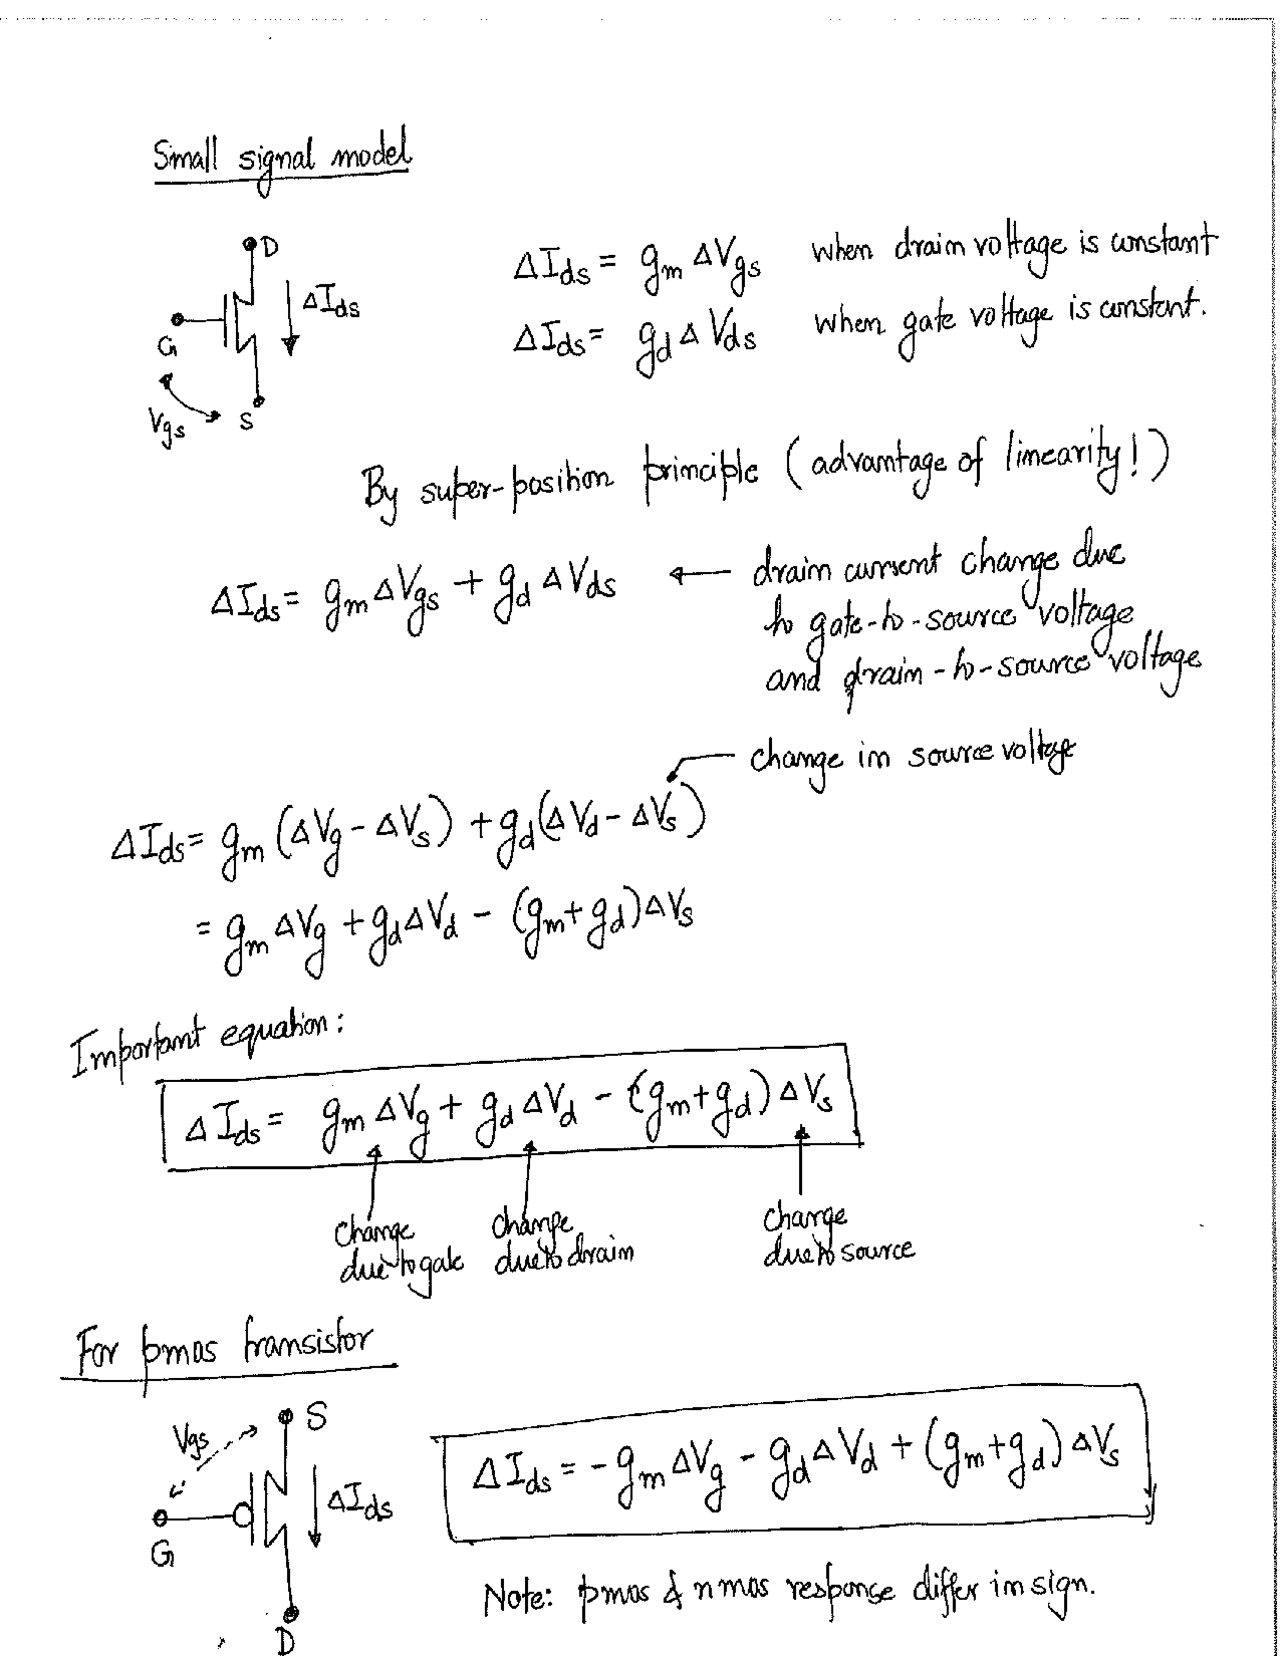 Small signal model
D
ΔIds
G
Vgs
S
ΔIds = gm ΔVgs when drain voltage is constant
ΔIds = gd Δ Vds when gate voltage is constant.
By super-position principle (advantage of linearity!)
ΔIds = gm ΔVgs + gd ΔVds ← drain current change due
to gate-to-source voltage
and drain-to-source voltage
change in source voltage
ΔIds = gm (ΔVg - ΔVs) + gd(ΔVd - ΔVs)
= gm ΔVg + gd ΔVd - (gm+gd)ΔVs
Important equation:
ΔIds = gm ΔVg + gd ΔVd - (gm+gd) ΔVs
change
due to gate
change
due to drain
change
due to source
For pmos transistor
Vgs
S
ΔIds
G
D
ΔIds = - gm ΔVg - gd ΔVd + (gm+gd) ΔVs
Note: pmos & nmos response differ in sign.